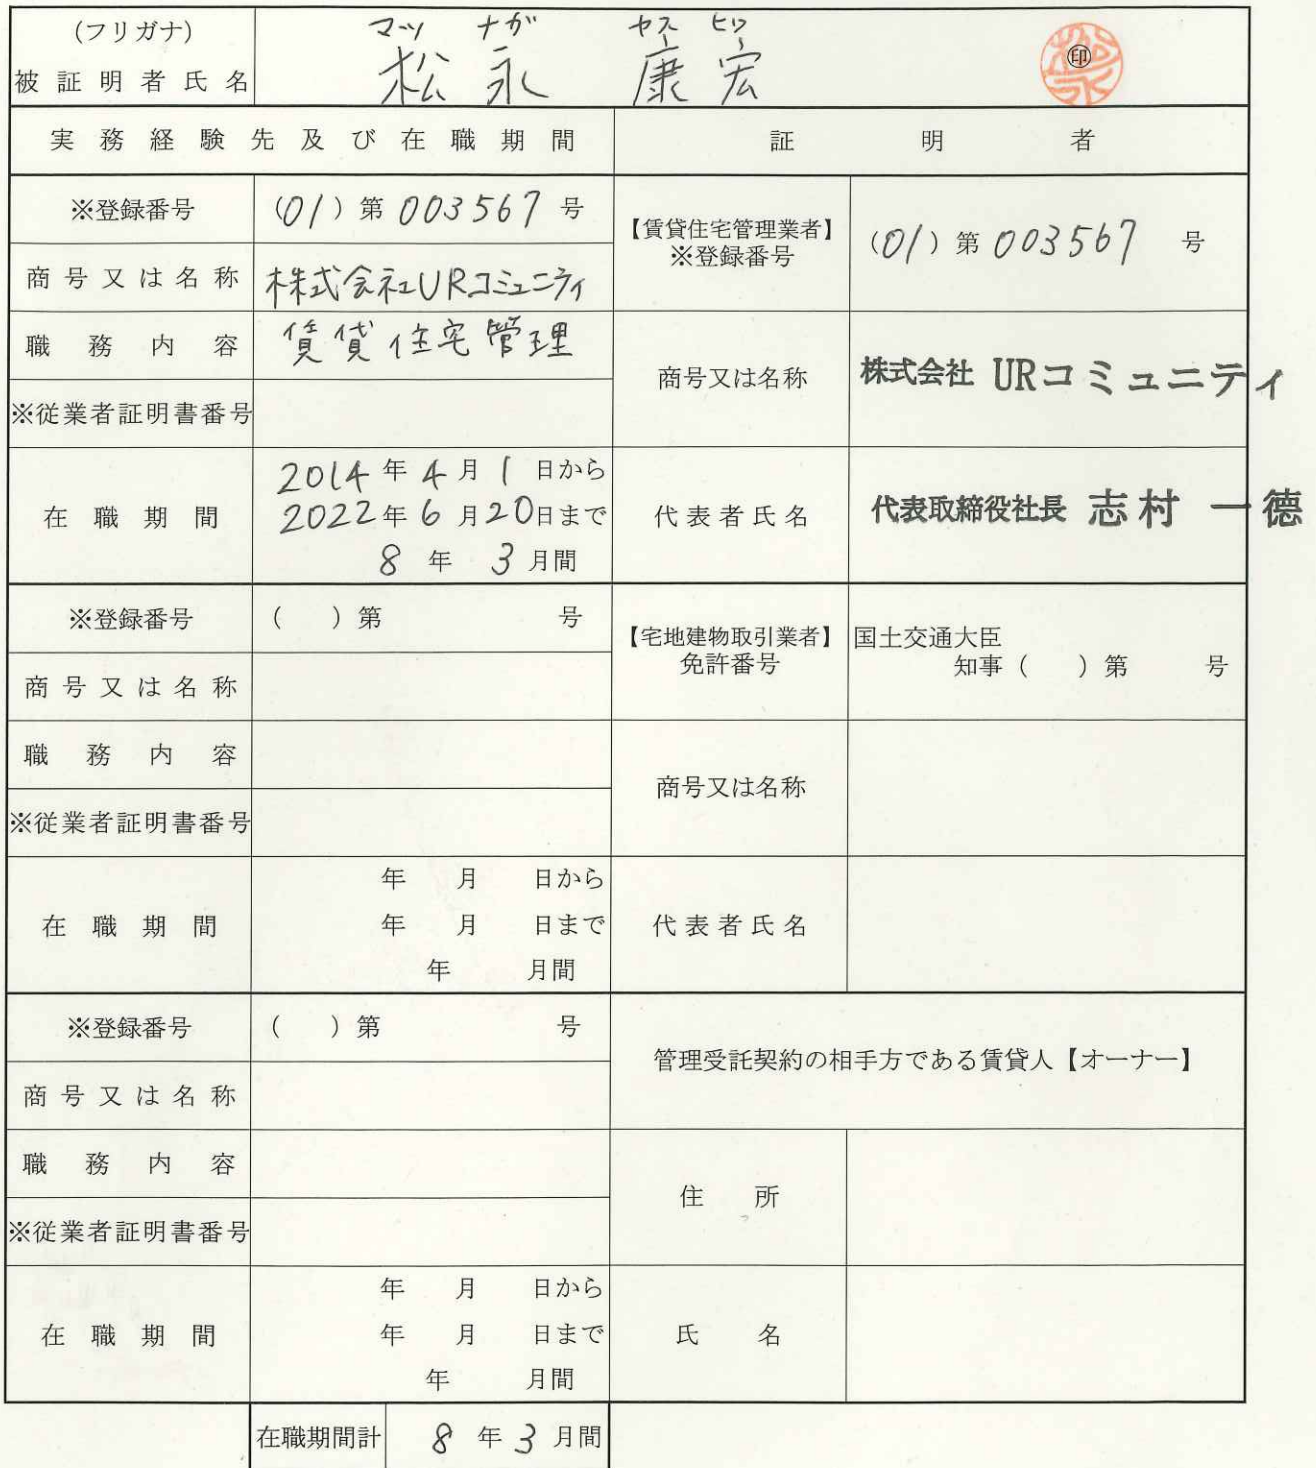 (フリガナ) マツ ナガ ヤスヒロ
被証明者氏名 松永 康宏 ㊞
松永
実務経験先及び在職期間 証明者
※登録番号 (01)第 003567 号
【賃貸住宅管理業者】
※登録番号 (01)第 003567 号
商号又は名称 株式会社URコミュニティ
職務内容 賃貸住宅管理
商号又は名称 株式会社 URコミュニティ
※従業者証明書番号
在職期間
2014年4月1日から
2022年6月20日まで
8年3月間
代表者氏名 代表取締役社長 志村 一徳
※登録番号 ( )第 号
【宅地建物取引業者】
免許番号
国土交通大臣
知事( )第 号
商号又は名称
職務内容
商号又は名称
※従業者証明書番号
在職期間
年 月 日から
年 月 日まで
年 月間
代表者氏名
※登録番号 ( )第 号
管理受託契約の相手方である賃貸人【オーナー】
商号又は名称
職務内容
住所
※従業者証明書番号
在職期間
年 月 日から
年 月 日まで
年 月間
氏名
在職期間計 8年3月間